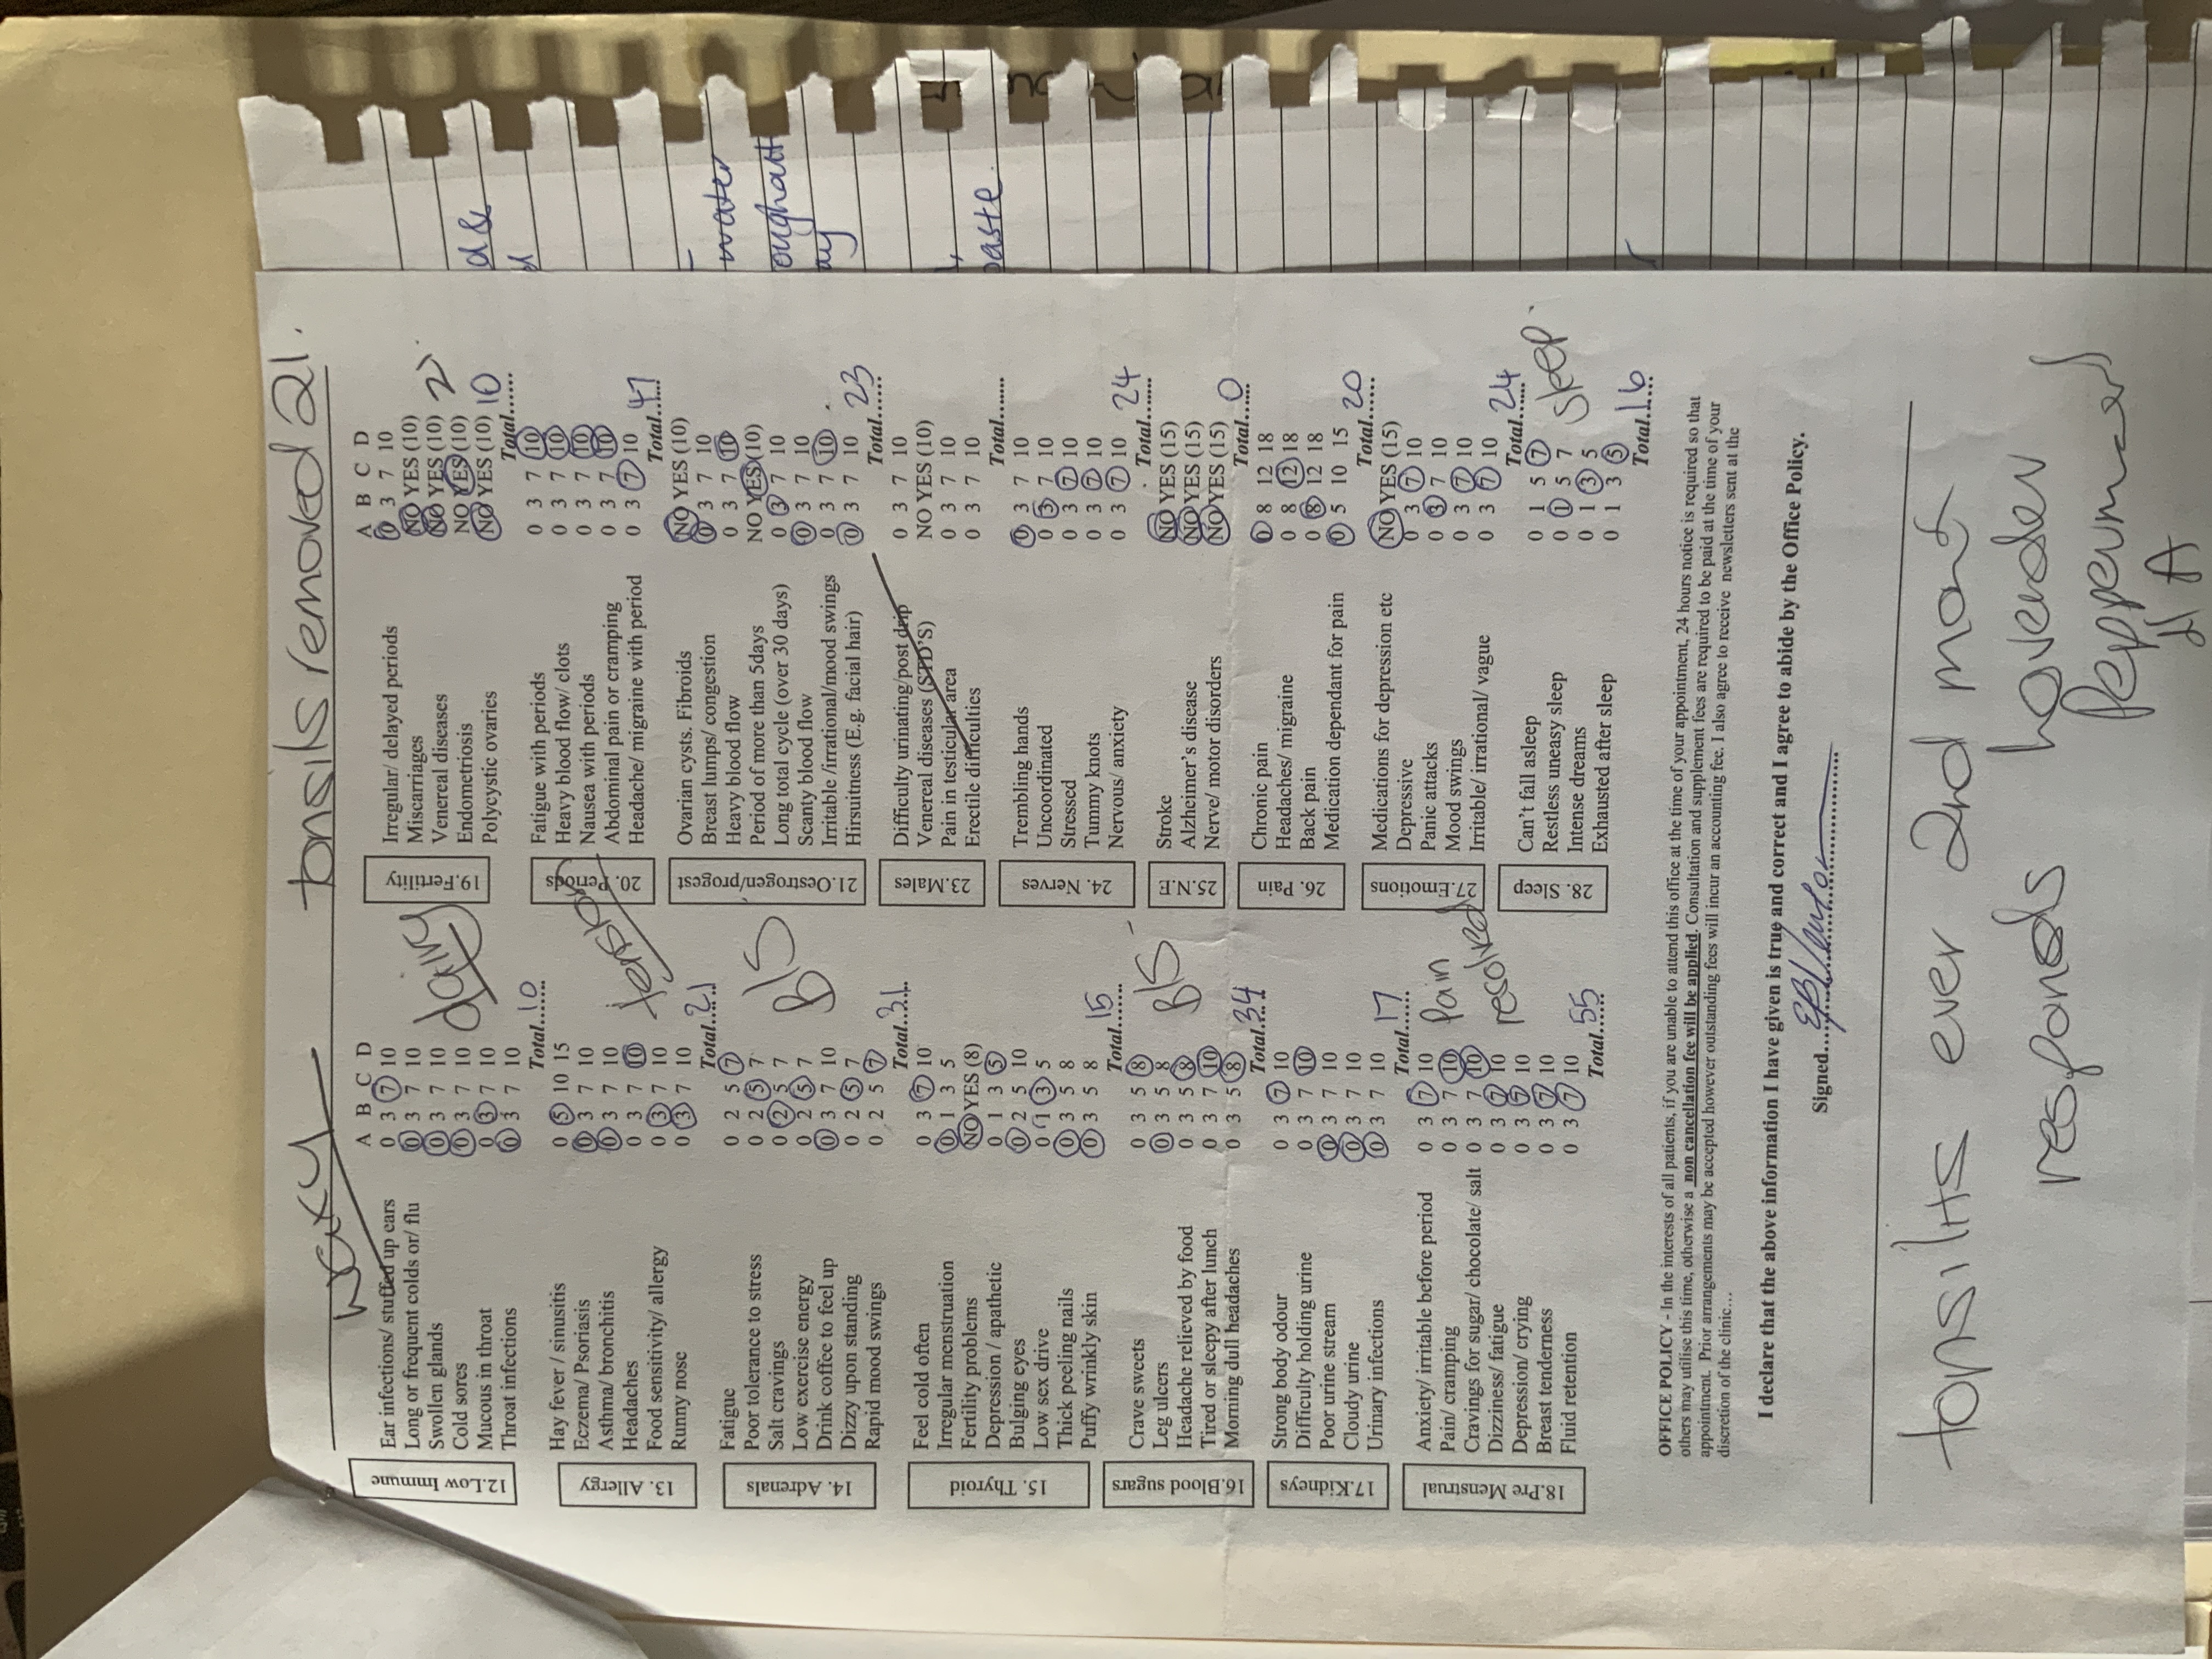 waxy
tonsils removed 21.
A B C D
12.Low Immune
Ear infections/ stuffed up ears 0 3 7 10
Long or frequent colds or/ flu 0 3 7 10
Swollen glands 0 3 7 10
Cold sores 0 3 7 10
Mucous in throat 0 3 7 10
Throat infections 0 3 7 10
dairy
Total......10
13. Allergy
Hay fever / sinusitis 0 5 10 15
Eczema/ Psoriasis 0 3 7 10
Asthma/ bronchitis 0 3 7 10
Headaches 0 3 7 10
Food sensitivity/ allergy 0 3 7 10
Runny nose 0 3 7 10
tension
Total......21
14. Adrenals
Fatigue 0 2 5 7
Poor tolerance to stress 0 2 5 7
Salt cravings 0 2 5 7
Low exercise energy 0 2 5 7
Drink coffee to feel up 0 3 7 10
Dizzy upon standing 0 2 5 7
Rapid mood swings 0 2 5 7
BIS
Total......31
15. Thyroid
Feel cold often 0 3 7 10
Irregular menstruation 0 1 3 5
Fertility problems NO YES (8)
Depression / apathetic 0 1 3 5
Bulging eyes 0 2 5 10
Low sex drive 0 1 3 5
Thick peeling nails 0 3 5 8
Puffy wrinkly skin 0 3 5 8
Total......15
16.Blood sugars
Crave sweets 0 3 5 8
Leg ulcers 0 3 5 8
Headache relieved by food 0 3 5 8
Tired or sleepy after lunch 0 3 7 10
Morning dull headaches 0 3 5 8
BIS
Total......34
17.Kidneys
Strong body odour 0 3 7 10
Difficulty holding urine 0 3 7 10
Poor urine stream 0 3 7 10
Cloudy urine 0 3 7 10
Urinary infections 0 3 7 10
Total......17
18.Pre Menstrual
Anxiety/ irritable before period 0 3 7 10
Pain/ cramping 0 3 7 10
Cravings for sugar/ chocolate/ salt 0 3 7 10
Dizziness/ fatigue 0 3 7 10
Depression/ crying 0 3 7 10
Breast tenderness 0 3 7 10
Fluid retention 0 3 7 10
Pain
resolved
Total......55
A B C D
19.Fertility
Irregular/ delayed periods 0 3 7 10
Miscarriages NO YES (10)
Venereal diseases NO YES (10)
Endometriosis NO YES (10)
Polycystic ovaries NO YES (10)
Total......10
20. Periods
Fatigue with periods 0 3 7 10
Heavy blood flow/ clots 0 3 7 10
Nausea with periods 0 3 7 10
Abdominal pain or cramping 0 3 7 10
Headache/ migraine with period 0 3 7 10
Total......47
21.Oestrogen/progest
Ovarian cysts. Fibroids NO YES (10)
Breast lumps/ congestion 0 3 7 10
Heavy blood flow 0 3 7 10
Period of more than 5days NO YES (10)
Long total cycle (over 30 days) 0 3 7 10
Scanty blood flow 0 3 7 10
Irritable /irrational/mood swings 0 3 7 10
Hirsuitness (E.g. facial hair) 0 3 7 10
Total......23
23.Males
Difficulty urinating/post drip 0 3 7 10
Venereal diseases (STD'S) NO YES (10)
Pain in testicular area 0 3 7 10
Erectile difficulties 0 3 7 10
Total......
24. Nerves
Trembling hands 0 3 7 10
Uncoordinated 0 3 7 10
Stressed 0 3 7 10
Tummy knots 0 3 7 10
Nervous/ anxiety 0 3 7 10
Total......24
25.N.E
Stroke NO YES (15)
Alzheimer's disease NO YES (15)
Nerve/ motor disorders NO YES (15)
Total......0
26. Pain
Chronic pain 0 8 12 18
Headaches/ migraine 0 8 12 18
Back pain 0 8 12 18
Medication dependant for pain 0 5 10 15
Total......20
27.Emotions
Medications for depression etc NO YES (15)
Depressive 0 3 7 10
Panic attacks 0 3 7 10
Mood swings 0 3 7 10
Irritable/ irrational/ vague 0 3 7 10
Total......24
28. Sleep
Can't fall asleep 0 1 5 7
Restless uneasy sleep 0 1 5 7
Intense dreams 0 1 3 5
Exhausted after sleep 0 1 3 5
sleep.
Total......16
OFFICE POLICY - In the interests of all patients, if you are unable to attend this office at the time of your appointment, 24 hours notice is required so that
others may utilise this time, otherwise a non cancellation fee will be applied. Consultation and supplement fees are required to be paid at the time of your
appointment. Prior arrangements may be accepted however outstanding fees will incur an accounting fee. I also agree to receive newsletters sent at the
discretion of the clinic…
I declare that the above information I have given is true and correct and I agree to abide by the Office Policy.
Signed
tonsilits ever 2nd month
responds
water
paste.